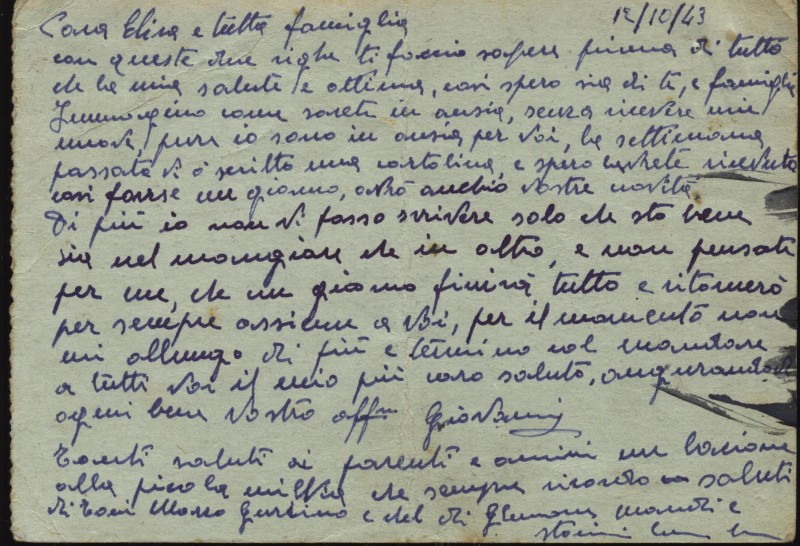 12/10/43
Cara Elisa e tutta famiglia
con queste due righe ti faccio sapere prima di tutto
che la mia salute e ottima, cosi spero sia di te, e famiglia
Immagino come sarete in ansia, senza ricevere mie
nuove, pure io sono in ansia per voi, la settimana
passata vi ó scritto una cartolina, e spero ricevuta
cosi forse un giorno, avró anchio vostre novitá
Di piú io non vi posso scrivere solo che sto bene
sia nel mangiare che in altro, e non pensate
per me, che un giorno finirá tutto e ritorneró
per sempre assieme a voi, per il momento non
mi allungo di piú e termino col mandare
a tutti voi il mio piú caro saluto, augurandovi
ogni bene vostro affmo Giovanni
Tanti saluti ai parenti e amici un bacione
alla picola che sempre ricordo saluti
di Toni e del di mandi e